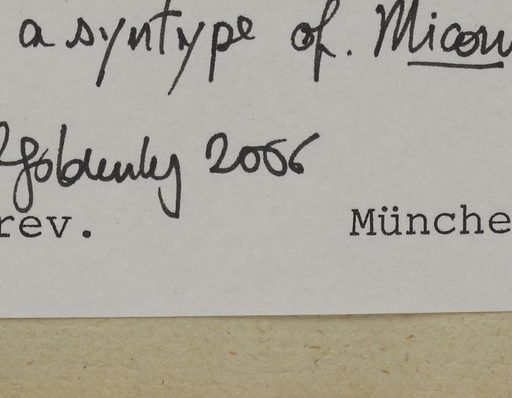 a syntype of. Micon
Rgoldenberg 2006
rev. Münche